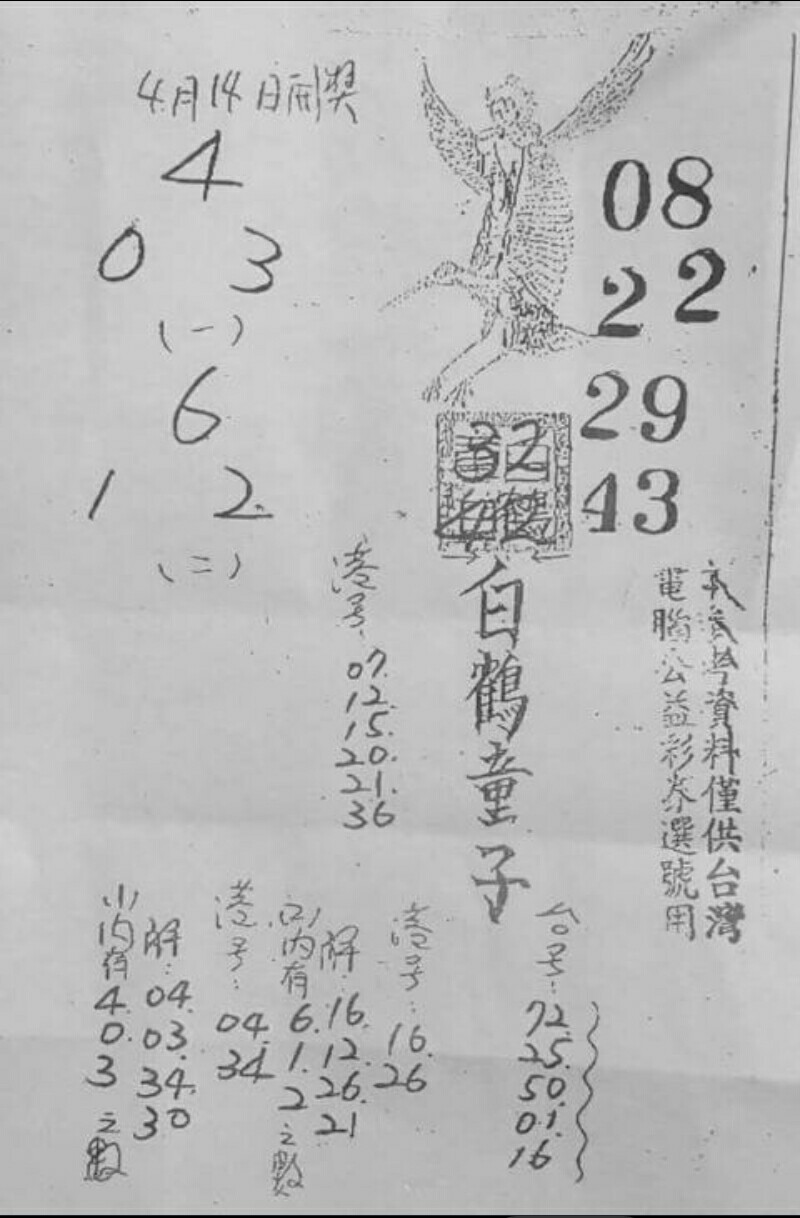 4月14日開獎
4
0 3
(一)
6
1 2
(二)
08
22
29
43
白鶴童子
資料僅供台灣
電腦公益彩券選號用
港号:
07.
12.
15.
20.
21.
36
台号:
72.
25.
50.
01.
16
港号:
16.
26
解:
16.
12.
26.
21
(二)內有
6.
1.
2
之數
港号:
04.
34
解:
04.
03.
34.
30
(一)內有
4.
0.
3
之數